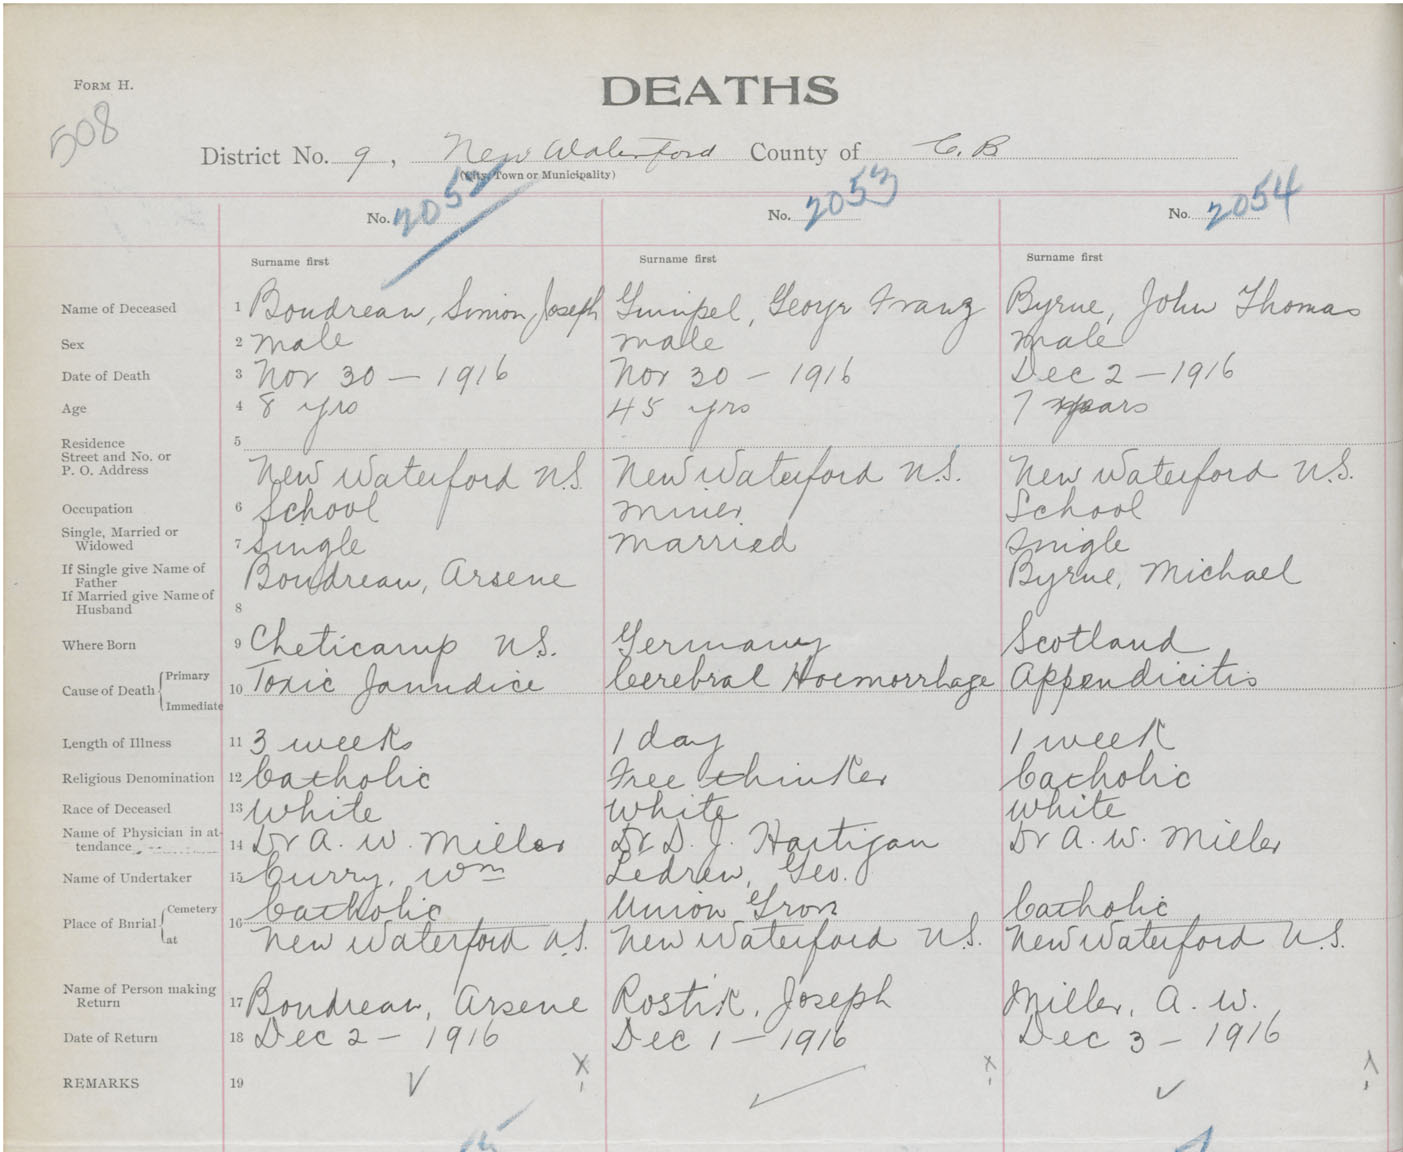 FORM H.
DEATHS
508
District No. 9, New Waterford County of C. B
(City, Town or Municipality)
No. 2052 No. 2053 No. 2054
Surname first Surname first Surname first
Name of Deceased 1 Boudreau, Simon Joseph Gumpel, Georg Franz Byrne, John Thomas
Sex 2 male male male
Date of Death 3 Nov 30 - 1916 Nov 30 - 1916 Dec 2 - 1916
Age 4 8 yrs 45 yrs 7 years
Residence 5
Street and No. or
P. O. Address New Waterford N.S. New Waterford N.S. New Waterford N.S.
Occupation 6 School miner School
Single, Married or
Widowed 7 Single married Single
If Single give Name of
Father Boudreau, Arsene Byrne, Michael
If Married give Name of
Husband 8
Where Born 9 Cheticamp N.S. Germany Scotland
Cause of Death Primary
Immediate 10 Toxic Jaundice Cerebral Hoemorrhage Appendicitis
Length of Illness 11 3 weeks 1 day 1 week
Religious Denomination 12 Catholic Free thinker Catholic
Race of Deceased 13 White White White
Name of Physician in at-
tendance 14 Dr A. W. Miller Dr D. J. Hartigan Dr A. W. Miller
Name of Undertaker 15 Curry, Wm Ledrew, Geo.
Place of Burial Cemetery 16 Catholic Union Grove Catholic
at New Waterford N.S. New Waterford N.S. New Waterford N.S.
Name of Person making
Return 17 Boudreau, Arsene Rostik, Joseph Miller, A. W.
Date of Return 18 Dec 2 - 1916 Dec 1 - 1916 Dec 3 - 1916
REMARKS 19